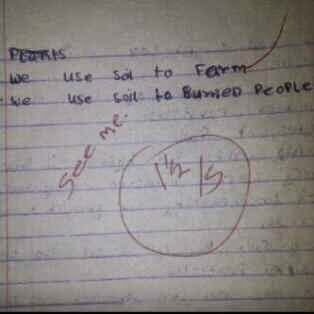 We use soil to Farm
We use soil to Burried PEOPLE
See me.
1½ / 5